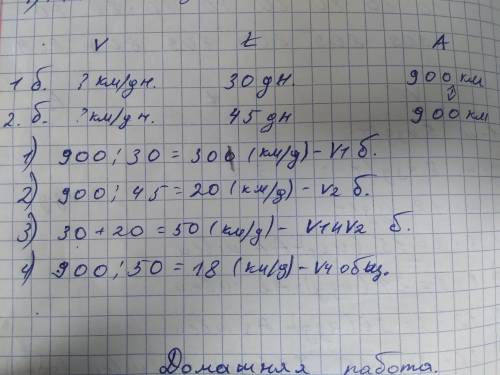 V t A
1 б. ? км/дн. 30 дн. 900 км
2. б. ? км/дн. 45 дн 900 км
1) 900 : 30 = 30 (км/д) - V1 б.
2) 900 : 45 = 20 (км/д) - V2 б.
3) 30 + 20 = 50 (км/д) - V1 и V2 б.
4) 900 : 50 = 18 (км/д) - V общ.
Домашняя работа.